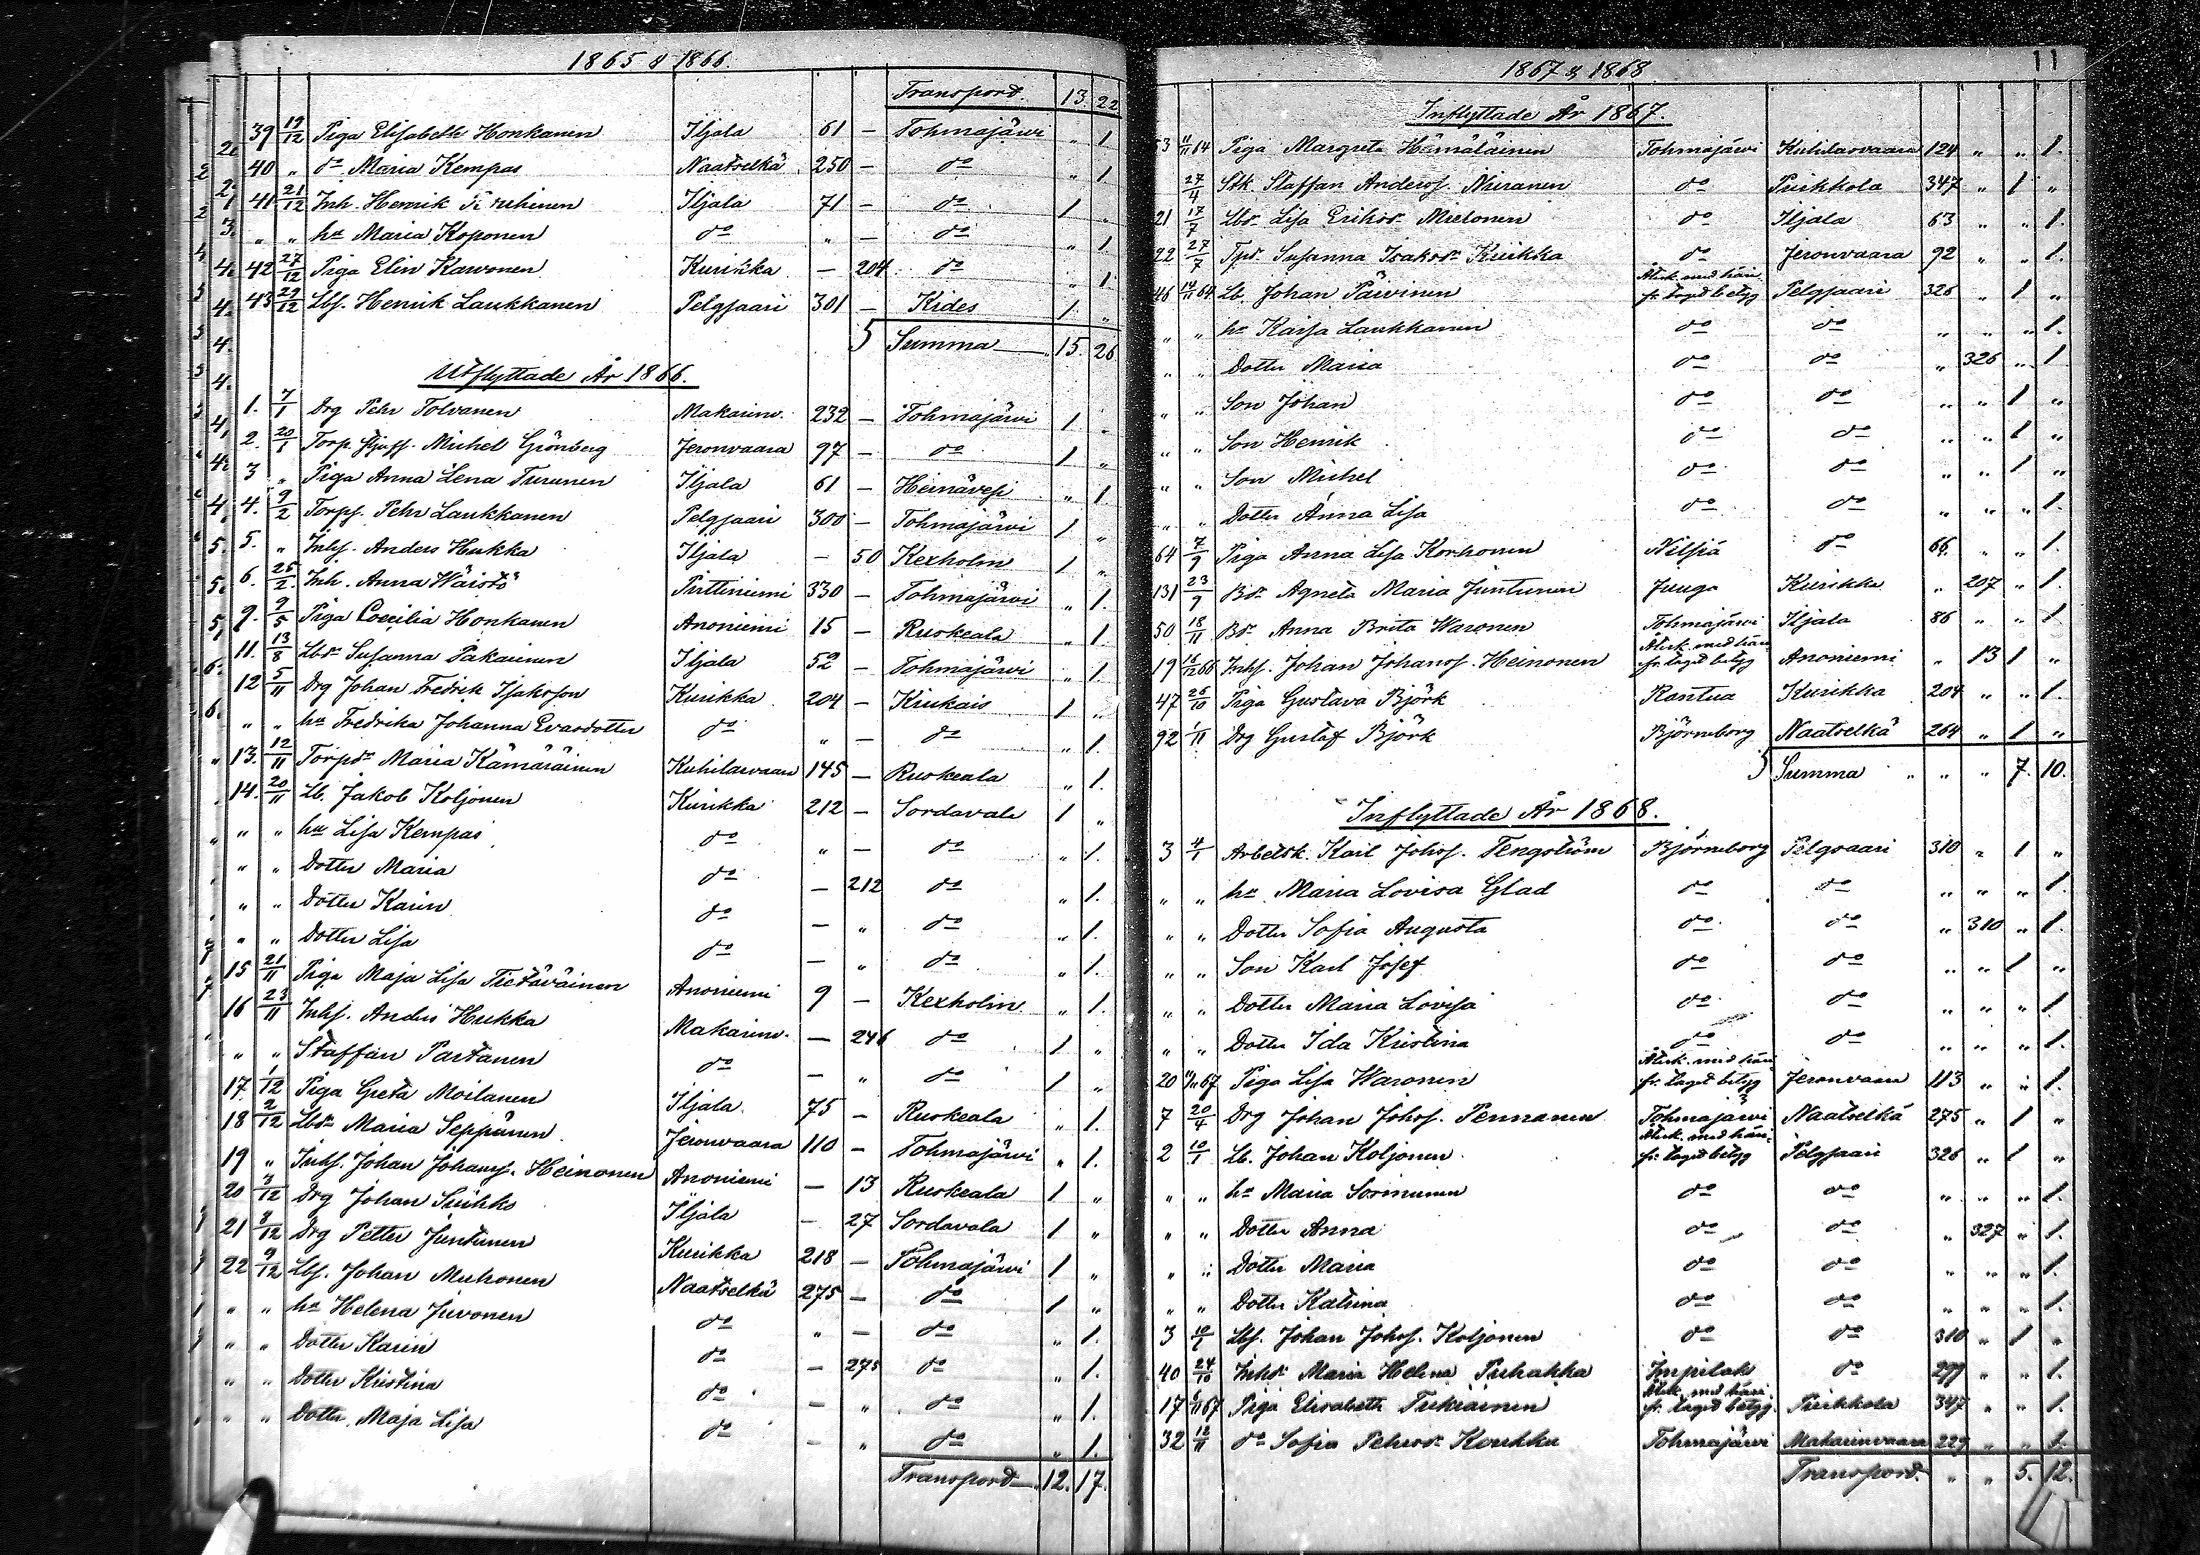 1865 & 1866.
Transpord 13. 22
39 19/12 Piga Elisabeth Honkanen Iljala 61 — Tohmajärvi „ 1
40 „ do Maria Kempas Naatselkä 250 — do „ 1.
41 21/12 Inh. Henrik Iljala 71 — do 1 „
„ „ hu Maria Koponen do „ — do „ 1
42 27/12 Piga Elin Karvonen Kurikka — 204 do „ 1
43 29/12 Lbs. Henrik Laukkanen Pelgjaari 301 — Kides 1 „
Summa 15. 26
Utflyttade År 1866.
1. 7/1 Drg Pehr Tolvanen Makarinv. 232 — Tohmajärvi 1 „
2. 20/1 Torp. Michel Grönberg Jeronvaara 97 — do 1 „
3 „ Piga Anna Lena Turunen Iljala 61 — Heinävesi „ 1
4. 9/2 Torps. Pehr Laukkanen Pelgjaari 300 — Tohmajärvi 1 „
5. „ Inhs. Anders Hukka Iljala — 50 Kexholm 1 „
6. 25/2 Inh. Anna Wäistö Pirttiniemi 330 — Tohmajärvi „ 1.
9. 9/5 Piga Coecilia Honkanen Anoniemi 15 — Ruskeala „ 1.
11. 13/8 Lbdr Susanna Pakarinen Iljala 52 — Tohmajärvi „ 1
12 5/11 Drg Johan Fredrik Isaksson Kurikka 204 — Kiukais 1 „
„ „ hu Fredrika Johanna Evasdotter do „ — do „ 1.
13. 12/11 Torpdr Maria Kämäräinen Kuhilasvaara 145 — Ruskeala „ 1.
14. 20/11 Lb. Jakob Koljonen Kurikka 212 — Sordavala 1 „
„ „ hu Lisa Kempas do „ — do „ 1.
„ „ Dotter Maria do — 212 do „ 1.
„ „ Dotter Karin do — „ do „ 1.
„ „ Dotter Lisa do — „ do „ 1.
15 21/11 Piga Maja Lisa Tietäväinen Anoniemi 9 — Kexholm „ 1.
16 23/11 Inhs. Anders Hukka Makarinv. — 246 do 1 „
„ „ Staffan Partanen do — „ do 1 „
17. 1/12 Piga Greta Moilanen Iljala 75 — Ruskeala „ 1.
18 2/12 Lbdr Maria Seppänen Jeronvaara 110 — Tohmajärvi „ 1.
19 „ Inhs. Johan Johans. Heinonen Anoniemi — 13 Ruskeala 1 „
20 3/12 Drg Johan Suihko Iljala — 27 Sordavala 1 „
21 8/12 Drg Petter Juntunen Kurikka 218 — Tohmajärvi 1 „
22 9/12 Lbs. Johan Muhonen Naatselkä 275 — do 1 „
„ „ hu Helena Juvonen do „ — do „ 1.
„ „ Dotter Karin do — 275 do „ 1.
„ „ Dotter Kristina do — „ do „ 1.
„ „ Dotter Maja Lisa do — „ do „ 1.
Transpord 12. 17.
1867 & 1868
11
Inflyttade År 1867.
53 11/11 64 Piga Margreta Hämäläinen Tohmajärvi Kuhilasvaara 124 „ „ 1.
27/4 Stk Staffan Anderss. Niiranen do Puikkola 347 „ 1 „
21 17/7 Lbdr Lisa Eriksdr Mielonen do Iljala 63 „ „ 1.
22 27/7 Tpdr Susanna Isaksdr Kuikka do Jeronvaara 92 „ „ 1.
46 14/11 64 Lb. Johan Päivinen Återk. med häri fr. taget betyg Pelgjaari 326 „ 1 „
„ „ hu Kaisa Laukkanen do do „ „ „ 1.
„ „ Dotter Maria do do „ 326 „ 1
„ „ Son Johan do do „ „ 1 „
„ „ Son Henrik do do „ „ 1 „
„ „ Son Michel do do „ „ 1 „
„ „ Dotter Anna Lisa do do „ „ „ 1.
64 7/9 Piga Anna Lisa Korhonen Nilsiä do 66 „ „ 1.
131 23/9 Bdr Agneta Maria Juntunen Juuga Kurikka „ 207 „ 1.
50 18/11 Bdr Anna Brita Waronen Tohmajärvi Iljala 86 „ „ 1
19 15/12 66 Inhs. Johan Johanss. Heinonen Återk. med häri fr. taget betyg Anoniemi „ 13 1 „
47 25/10 Piga Gustava Björk Kurikka 204 „ „ 1.
92 1/11 Drg Gustaf Björk Björneborg Naatselkä 264 „ 1 „
Summa „ „ „ 7. 10.
Inflyttade År 1868.
3 4/1 Arbetsk. Karl Johss. Tengström Björneborg Pelgsaari 310 „ 1 „
„ „ hu Maria Lovisa Glad do do „ „ „ 1.
„ „ Dotter Sofia Augusta do do „ 310 „ 1.
„ „ Son Karl Josef do do „ „ 1 „
„ „ Dotter Maria Lovisa do do „ „ „ 1
„ „ Dotter Ida Kristina do do „ „ „ 1.
20 67 Piga Lisa Waronen Återk. med häri fr. taget betyg Jeronvaara 113 „ „ 1.
7 20/4 Drg Johan Johss. Pennanen Tohmajärvi Naatselkä 275 „ 1 „
2 10/1 Lb. Johan Koljonen Återk. med häri fr. taget betyg Pelgjaari 326 „ 1 „
„ „ hu Maria Sorminen do do „ „ „ 1.
„ „ Dotter Anna do do „ 327 „ 1.
„ „ Dotter Maria do do „ „ „ 1.
„ „ Dotter Katrina do do „ „ „ 1.
3 10/1 Lbs. Johan Johss. Koljonen do do 310 „ 1 „
40 24/10 Inhdr Maria Helena Puhakka Impilaks do 299 „ „ 1.
17 67 Piga Elisabeth Tukiainen Återk. med häri fr. taget betyg Puikkola 347 „ „ 1.
32 12/11 do Sofia Pehrsdr Koukku Tohmajärvi Makarinvaara 229 „ „ 1.
Transpord „ „ 5. 12.